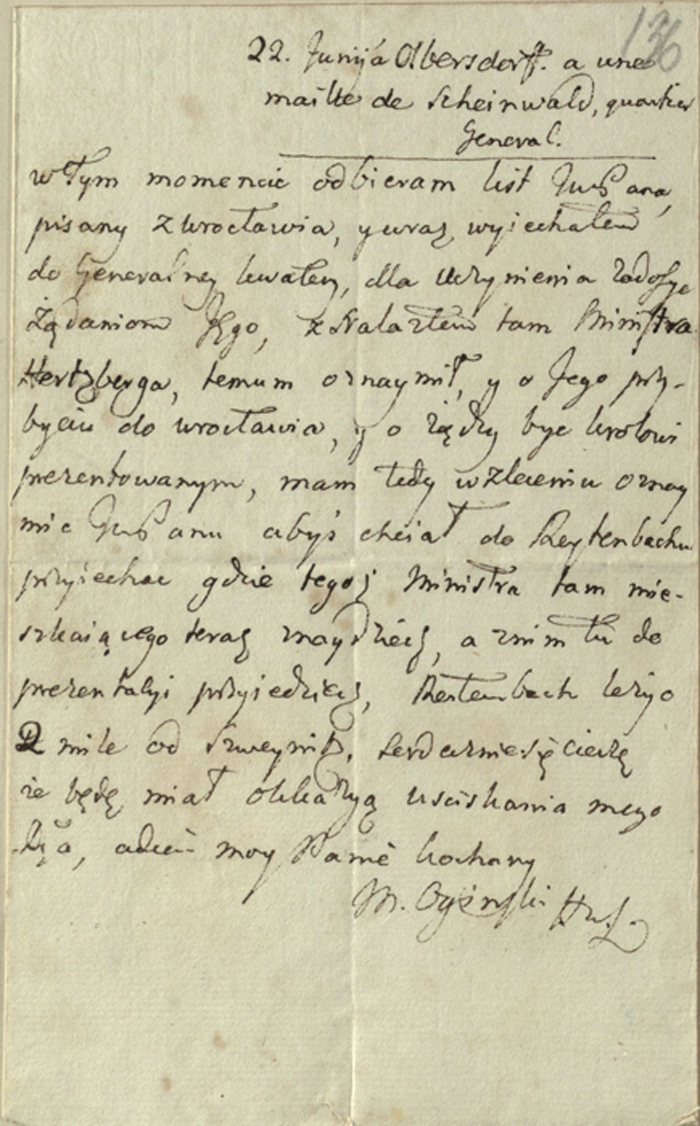 136
22. Junij á Olbersdorff. a une
maille de Scheinwald, quartier
General.
w tym momencie odbieram list JwPana,
pisany z wrocławia, y wraz wyiechałem
do Generalney kwatery, dla uczynienia zadosyc
Żądaniom Jego, zNalazłem tam Ministra
Hertzberga, temum oznaymił, y o Jego przy-
byciu do wrocławia, y o żądzy byc krolowi
prezentowanym, mam tedy w zleceniu oznay
mic JwPanu abyś chciał do Reytenbachu
przyiechac gdzie tegoż Ministra tam mie-
szkaiącego teraz znaydziesz, a z nim tu do
prezentacyi przyiedziesz, Restembach leży o
2 mile od Szweynitz. serdecznie się cieszę
że będę miał okkazyą usciskania mego
adieu moy Panie kochany
M. Ogiński HwL.